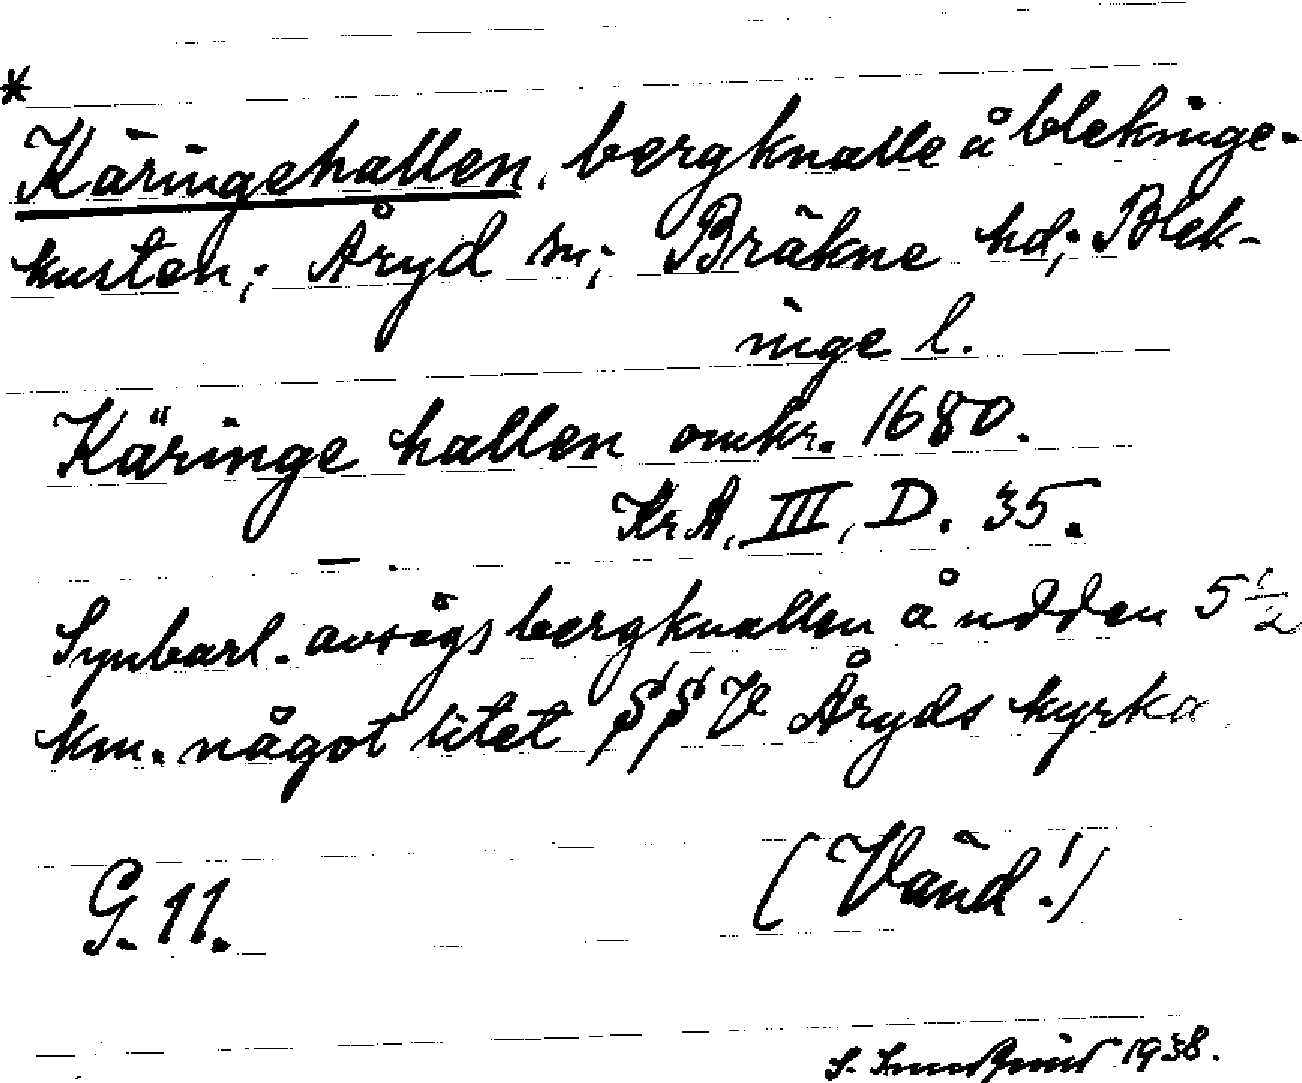 *
Käringehallen, bergknalle å blekinge-
kusten; Åryd sn; Bräkne hd; Blek-
inge l.
Käringe hallen omkr. 1680.
KrA, III, D. 35.
Synbarl. avsågs bergknallen å udden 5 1/2
km. något litet SSV Åryds kyrka
G. 11. (Vänd!)
S. 1938.